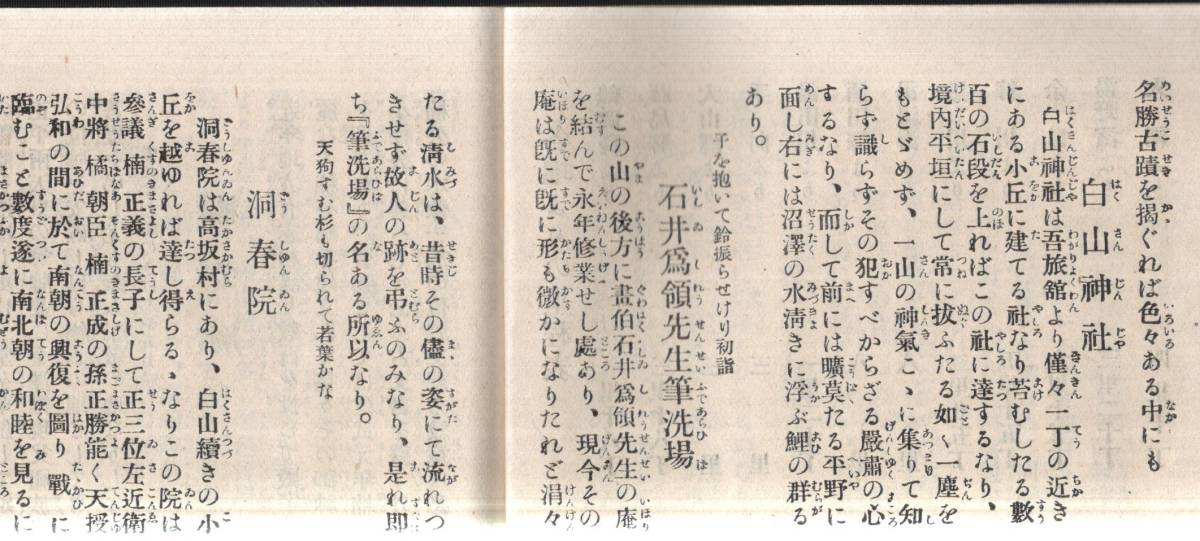 名勝古蹟を揭ぐれば色々ある中にも
白山神社
白山神社は吾旅舘より僅々一丁の近き
にある小丘に建てる社なり苔むしたる數
百の石段を上ればこの社に達するなり、
境內平垣にして常に拔ふたる如く一塵を
もとゞめず、一山の神氣こゝに集りて知
らず識らずその犯すべからざる嚴肅の心
するなり、而して前には曠莫たる平野に
面し右には沼澤の水淸きに浮ぶ鯉の群る
あり。
子を抱いて鈴振らせけり初詣
石井爲領先生筆洗場
この山の後方に畫伯石井爲領先生の庵
を結んで永年修業せし處あり、現今その
庵は旣に旣に形も微かになりたれど涓々
たる淸水は、昔時その儘の姿にて流れつ
きせず故人の跡を弔ふのみなり、是れ卽
ち『筆洗場』の名ある所以なり。
天狗すむ杉も切られて若葉かな
洞春院
洞春院は高坂村にあり、白山續きの小
丘を越ゆれば達し得らるゝなりこの院は
參議楠正義の長子にして正三位左近衛
中將橘朝臣楠正成の孫正勝能く天授
弘和の間に於て南朝の興復を圖り戰に
臨むこと數度遂に南北朝の和睦を見るに